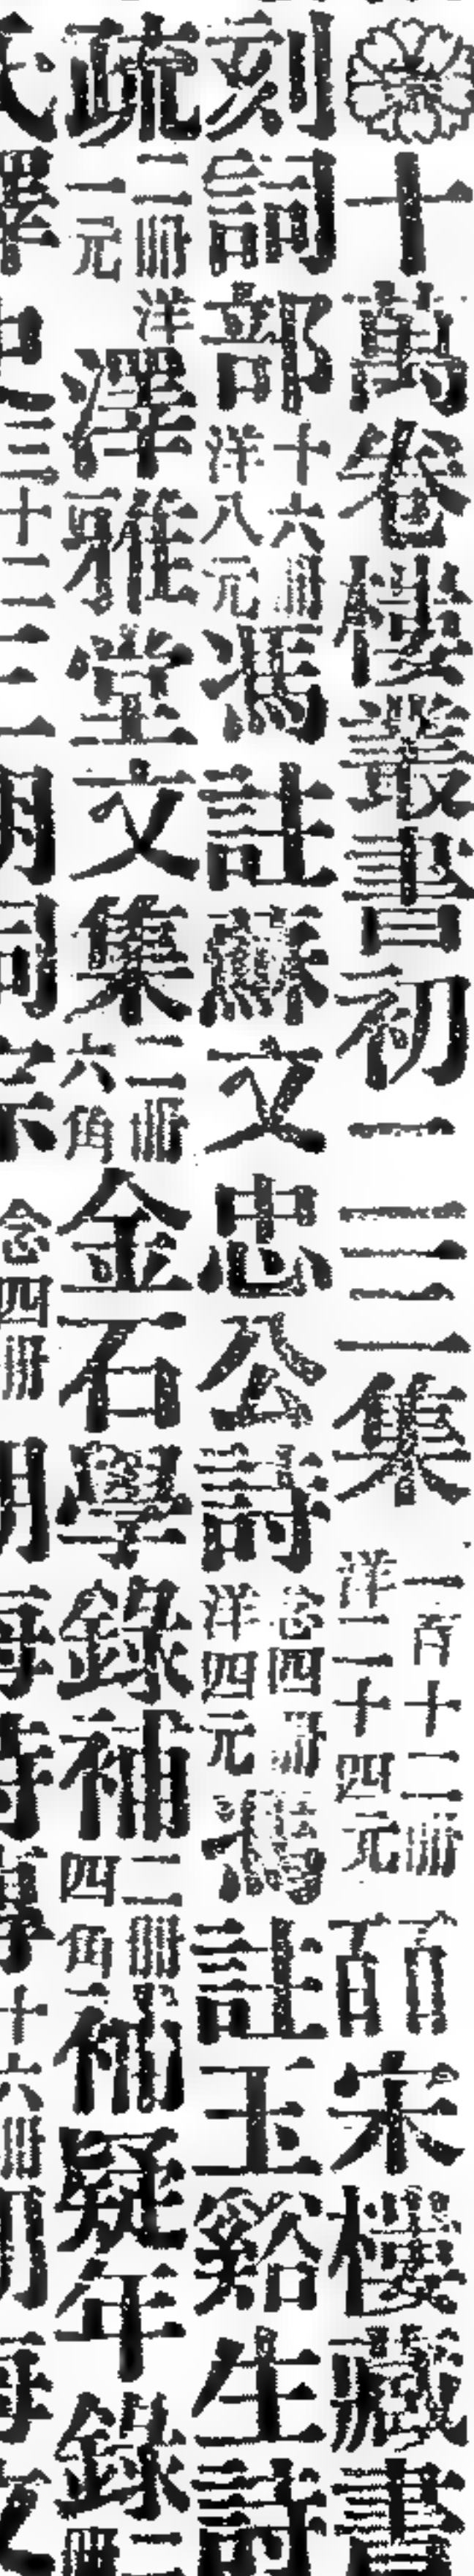 十萬卷樓叢書初二三集一百十二冊洋二十四元皕宋樓藏書
刻詞部十六冊洋八元馮註蘇文忠公詩念四冊洋四元馮註玉谿生詩
疏二冊洋一元澤雅堂文集二冊六角金石學錄補二冊四角補疑年錄二冊
念四冊十六冊